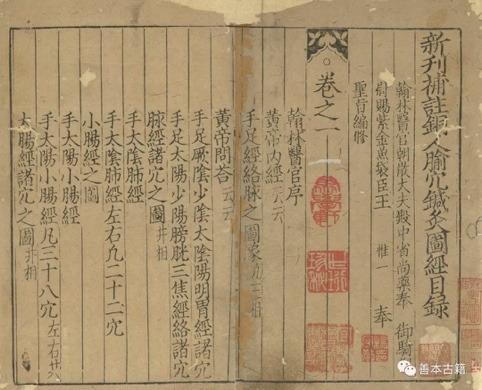 新刊補註銅人腧穴鍼灸圖經目錄
翰林醫官朝散大夫殿中省尚藥奉 御騎
尉賜紫金魚袋臣王 惟一 奉
聖旨編修
卷之一
翰林醫官序
黃帝内經云云
手足經絡脉之圖象九三相
黃帝問答云云
手足厥陰少陰太陰陽明胃經諸穴
手足太陽少陽膀胱三焦經絡諸穴
脉經諸穴之圖并相
手太陰肺經
手太陰肺經左右九二十二穴
小腸經之圖
手太陽小腸經
手太陽小腸經凡三十八穴左右廿八
大腸經諸穴之圖并相
善本古籍